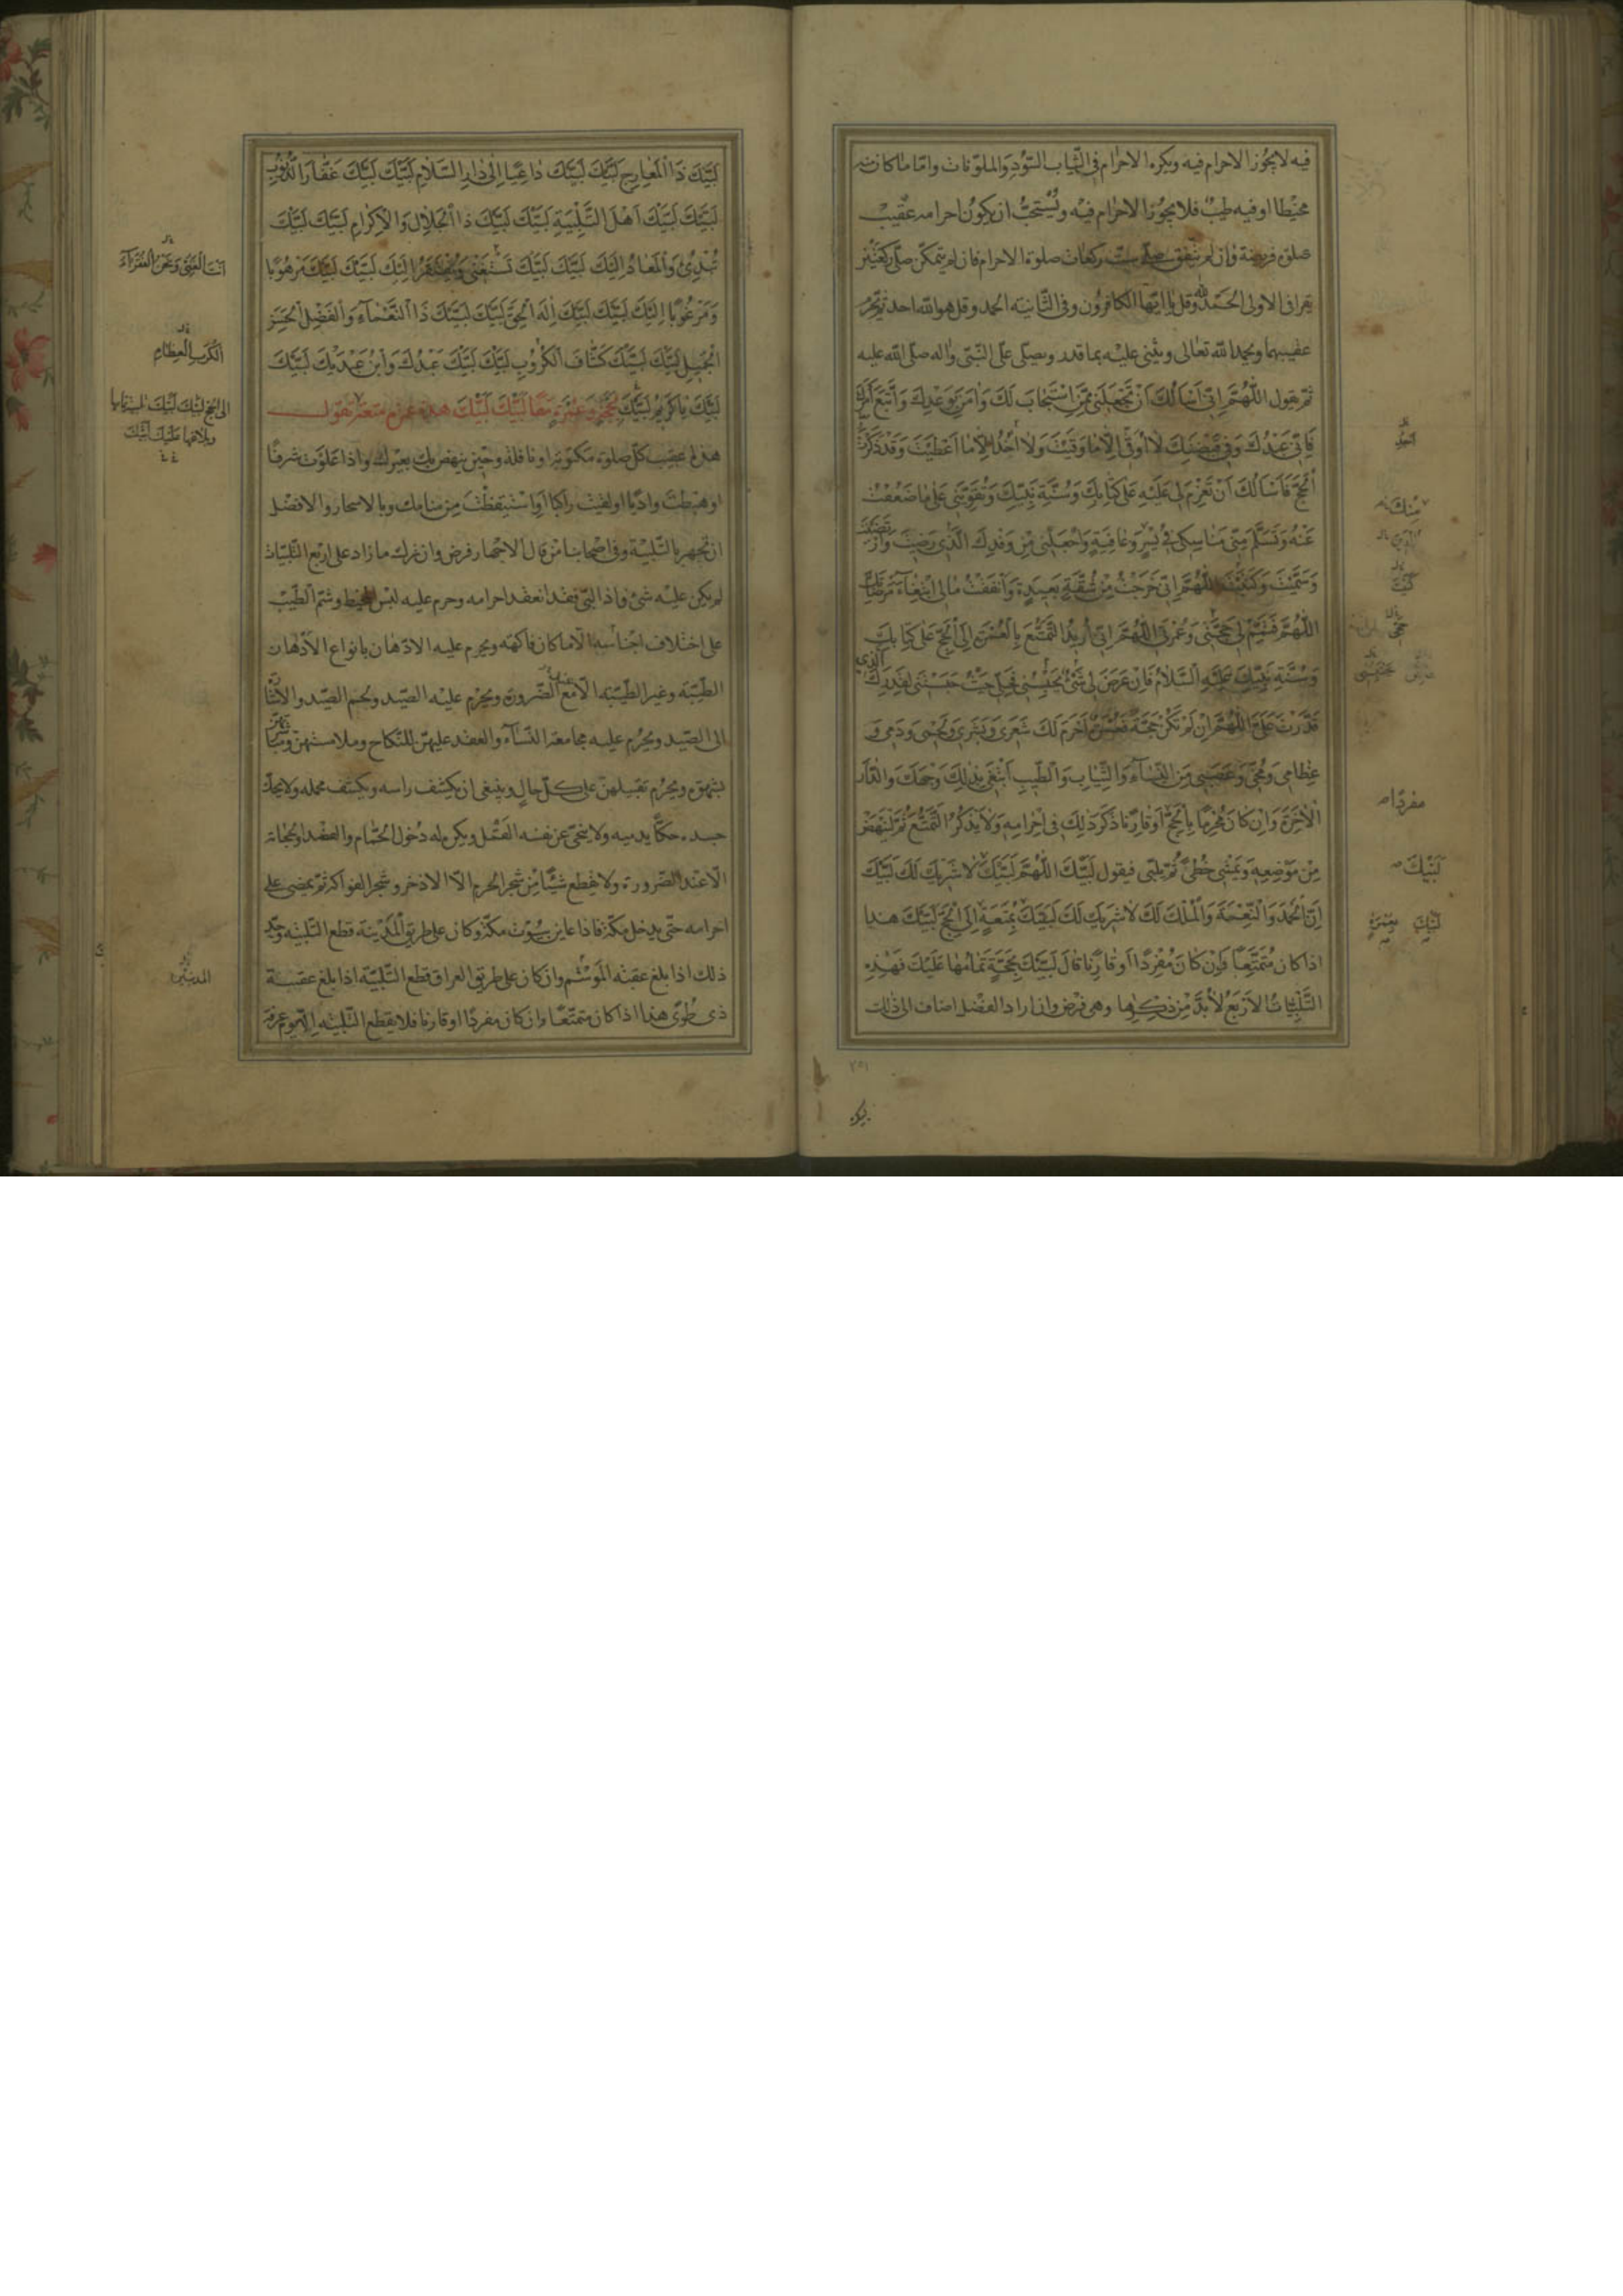 فيه لا يجوز الاحرام فيه ويكره الاحرام فى الثّياب السّود والملوّنات وامّا ما كان
مخيطا او فيه طيب فلا يجوز الاحرام فيه ويُستحبّ ان يكون احرامه عقيب
صلوة فريضة وان لم يتّفق صلّى ستّ ركعات صلوة الاحرام فان لم يتمكّن صلّى ركعتين
يقرا فى الاولى الحمد وقل يا ايّها الكافرون وفى الثّانية الحمد وقل هو الله احد ثمّ يحرم
عقيبهما ويحمد الله تعالى ويثنى عليه بما قدر ويصلّى على النّبىّ واله صلّى الله عليه
ثمّ يقول اَللّهُمَّ اِنّى اَسْاَلُكَ اَنْ تَجْعَلَنى مِمَّنِ اسْتَجابَ لَكَ وَامَنَ بِوَعْدِكَ وَاتَّبَعَ اَمْرَكَ
فَاِنّى عَبْدُكَ وَفى قَبْضَتِكَ لا اُوقى اِلّا ما وَقَيْتَ وَلا اخُذُ اِلّا ما اَعْطَيْتَ وَقَدْ ذَكَرْتَ
الْحَجَّ فَاَسْاَلُكَ اَنْ تَعْزِمَ لى عَلَيْهِ عَلى كِتابِكَ وَسُنَّةِ نَبِيِّكَ وَتُقَوِّيَنى عَلى ما ضَعُفْتُ
عَنْهُ وَتَسَلَّمَ مِنّى مَناسِكى فى يُسْرٍ وَعافِيَةٍ وَاجْعَلْنى مِنْ وَفْدِكَ الَّذى رَضيتَ وَارْتَضَيْتَ
وَسَمَّيْتَ وَكَتَبْتَ اَللّهُمَّ اِنّى خَرَجْتُ مِنْ شُقَّةٍ بَعيدَةٍ وَاَنْفَقْتُ مالى ابْتِغآءَ مَرْضاتِكَ
اَللّهُمَّ فَتَمِّمْ لى حَجَّتى وَعُمْرَتى اَللّهُمَّ اِنّى اُريدُ التَّمَتُّعَ بِالْعُمْرَةِ اِلَى الْحَجِّ عَلى كِتابِكَ
وَسُنَّةِ نَبِيِّكَ عَلَيْهِ السَّلامُ فَاِنْ عَرَضَ لى شَىْءٌ يَحْبِسُنى فَحُلَّنى حَيْثُ حَبَسْتَنى لِقَدَرِكَ الَّذى
قَدَّرْتَ عَلَىَّ اَللّهُمَّ اِنْ لَمْ تَكُنْ حَجَّةً فَعُمْرَةً اَحْرَمَ لَكَ شَعْرى وَبَشَرى وَلَحْمى وَدَمى وَ
عِظامى وَمُخّى وَعَصَبى مِنَ النِّسآءِ وَالثِّيابِ وَالطّيبِ اَبْتَغى بِذلِكَ وَجْهَكَ وَالدّارَ
الْاخِرَةَ وَاِنْ كانَ مُحْرِمًا بِالْحَجِّ اَوْ قارِنًا ذَكَرَ ذلِكَ فى اِحْرامِهِ وَلا يَذْكُرُ التَّمَتُّعَ ثُمَّ لْيَنْهَضْ
مِنْ مَوْضِعِهِ وَيَمْشى خُطىً ثُمَّ يلبّى فيقول لَبَّيْكَ اَللّهُمَّ لَبَّيْكَ لا شَريكَ لَكَ لَبَّيْكَ
اِنَّ الْحَمْدَ وَالنِّعْمَةَ وَالْمُلْكَ لَكَ لا شَريكَ لَكَ لَبَّيْكَ بِمُتْعَةٍ اِلَى الْحَجِّ لَبَّيْكَ هذا
اذا كان مُتَمَتِّعًا فَاِنْ كانَ مُفْرِدًا اَوْ قارِنًا قالَ لَبَّيْكَ بِحَجَّةٍ تَمامُها عَلَيْكَ فَهذِهِ
التَّلْبِياتُ الْاَرْبَعُ لا بُدَّ مِنْ ذِكْرِها وهى فرض وان اراد الفضل اضاف الى ذلك
اَحَدَ
مِنْكَ
كَتَبْتَ
حَجّى
مفردًا
لَبَّيْكَ
لَبَّيْكَ بِعُمْرَةٍ
٢٥١
لَبَّيْكَ ذَا الْمَعارِجِ لَبَّيْكَ لَبَّيْكَ داعِيًا اِلى دارِ السَّلامِ لَبَّيْكَ لَبَّيْكَ غَفّارَ الذُّنُوبِ
لَبَّيْكَ لَبَّيْكَ اَهْلَ التَّلْبِيَةِ لَبَّيْكَ لَبَّيْكَ ذَا الْجَلالِ وَالْاِكْرامِ لَبَّيْكَ لَبَّيْكَ
تُبْدِئُ وَالْمَعادُ اِلَيْكَ لَبَّيْكَ لَبَّيْكَ تَسْتَغْنى وَيُفْتَقَرُ اِلَيْكَ لَبَّيْكَ لَبَّيْكَ مَرْهُوبًا
وَمَرْغُوبًا اِلَيْكَ لَبَّيْكَ لَبَّيْكَ اِلهَ الْحَقِّ لَبَّيْكَ لَبَّيْكَ ذَا النَّعْمآءِ وَالْفَضْلِ الْحَسَنِ
الْجَميلِ لَبَّيْكَ لَبَّيْكَ كَشّافَ الْكُرُوبِ لَبَّيْكَ لَبَّيْكَ عَبْدُكَ وَابْنُ عَبْدَيْكَ لَبَّيْكَ
لَبَّيْكَ يا كَريمُ لَبَّيْكَ بِحَجَّةٍ وَعُمْرَةٍ مَعًا لَبَّيْكَ لَبَّيْكَ هذه عمرة متعة تقول
هذا عقيب كلّ صلوة مكتوبة او نافلة وحين ينهض بك بعيرك واذا علوت شرفًا
او هبطت واديًا او لقيت راكبا او استيقظت من منامك وبالاسحار والافضل
ان تجهر بالتّلبية وفى اصحابنا من قال الاجهار فرض وان ترك ما زاد على اربع التّلبيات
لم يكن عليه شئ واذا لبّى فقد انعقد احرامه وحرم عليه لبس المخيط وشمّ الطّيب
على اختلاف اجناسه الّا ما كان فاكهة ويحرم عليه الادّهان بانواع الادهان
الطّيّبة وغير الطّيّبة الّا مع الضّرورة ويحرم عليه الصّيد ولحم الصّيد والاشارة
الى الصّيد ويحرم عليه مجامعة النّسآء والعقد عليهنّ للنّكاح وملامستهنّ ومباشرتهنّ
بشهوة ويحرم تقبيلهنّ على كلّ حال وينبغى ان يكشف راسه ويكشف محمله ولا يحكّ
جسده حكًّا يدميه ولا ينحّى عن نفسه القمّل ويكره له دخول الحمّام والفصد والحجامة
الّا عند الضّرورة ولا يقطع شيئًا من شجر الحرم الّا الاذخر وشجر الفواكه ثمّ يمضى على
احرامه حتّى يدخل مكّة فاذا عاين بيوت مكّة وكان على طريق المدينة قطع التّلبية وحدّ
ذلك اذا بلغ عقبة وان كان على طريق العراق قطع التّلبية اذا بلغ عقبة
ذى طُوىً هذا اذا كان متمتّعًا وان كان مفردًا او قارنا فلا يقطع التّلبية الّا يوم عرفة
اَنْتَ الْغَنِىُّ وَنَحْنُ الْفُقَرآءُ
الْكُرَبِ الْعِظامِ
المدنيّين